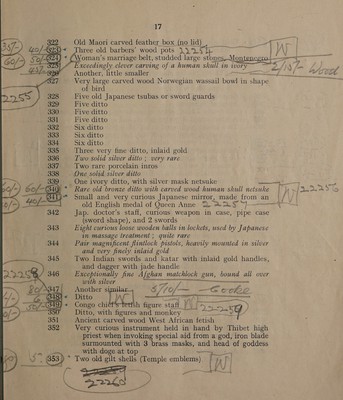 17
322 Old Maori carved feather box (no lid)
35/- 40/- 323 Three old barbers' wood pots 22254 W
60/- 50/- 324 Woman's marriage belt, studded large stones, Montenegro
325 Exceedingly clever carving of a human skull in ivory 2/15/- Wood
326 Another, little smaller
327 Very large carved wood Norwegian wassail bowl in shape
of bird
2255 328 Five old Japanese tsubas or sword guards
329 Five ditto
330 Five ditto
331 Five ditto
332 Six ditto
333 Six ditto
334 Six ditto
335 Three very fine ditto, inlaid gold
336 Two solid silver ditto ; very rare
337 Two rare porcelain inros
338 One solid silver ditto
339 One ivory ditto, with silver mask netsuke
60/- 340 Rare old bronze ditto with carved wood human skull netsuke W 22256
40/- 341 Small and very curious Japanese mirror, made from an
old English medal of Queen Anne 22257
342 Jap. doctor's staff, curious weapon in case, pipe case
(sword shape), and 2 swords
343 Eight curious loose wooden balls in lockets, used by Japanese
in massage treatment ; quite rare
344 Pair magnificent flintlock pistols, heavily mounted in silver
and very finely inlaid gold
345 Two Indian swords and katar with inlaid gold handles,
and dagger with jade handle
22258 346 Exceptionally fine Afghan matchlock gun, bound all over
with silver
347 Another similar 5/10/- Cooke
348 Ditto W
349 Congo chief's fetish figure staff W 22259
350 Ditto, with figures and monkey
351 Ancient carved wood West African fetish
352 Very curious instrument held in hand by Thibet high
priest when invoking special aid from a god, iron blade
surmounted with 3 brass masks, and head of goddess
with doge at top
353 Two old gilt shells (Temple emblems) W
22260